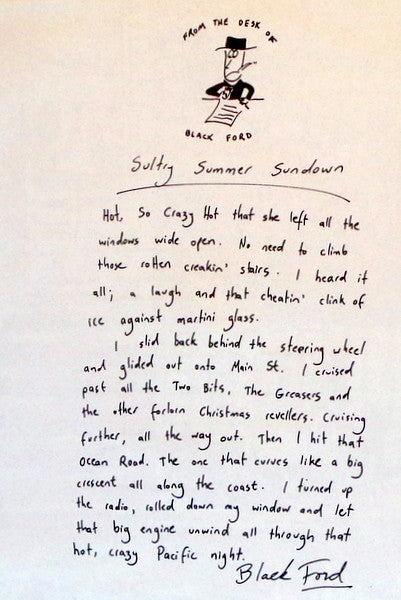 FROM THE DESK OF
BLACK FORD
Sultry Summer Sundown
Hot, So Crazy Hot that she left all the
windows wide open. No need to climb
those rotten creakin' stairs. I heard it
all; a laugh and that cheatin' clink of
ice against martini glass.
I slid back behind the steering wheel
and glided out onto Main St. I cruised
past all the Two Bits, The Greasers and
the other forlorn Christmas revellers. Cruising
further, all the way out. Then I hit that
Ocean Road. The one that curves like a big
crescent all along the coast. I turned up
the radio, rolled down my window and let
that big engine unwind all through that
hot, crazy Pacific night.
Black Ford